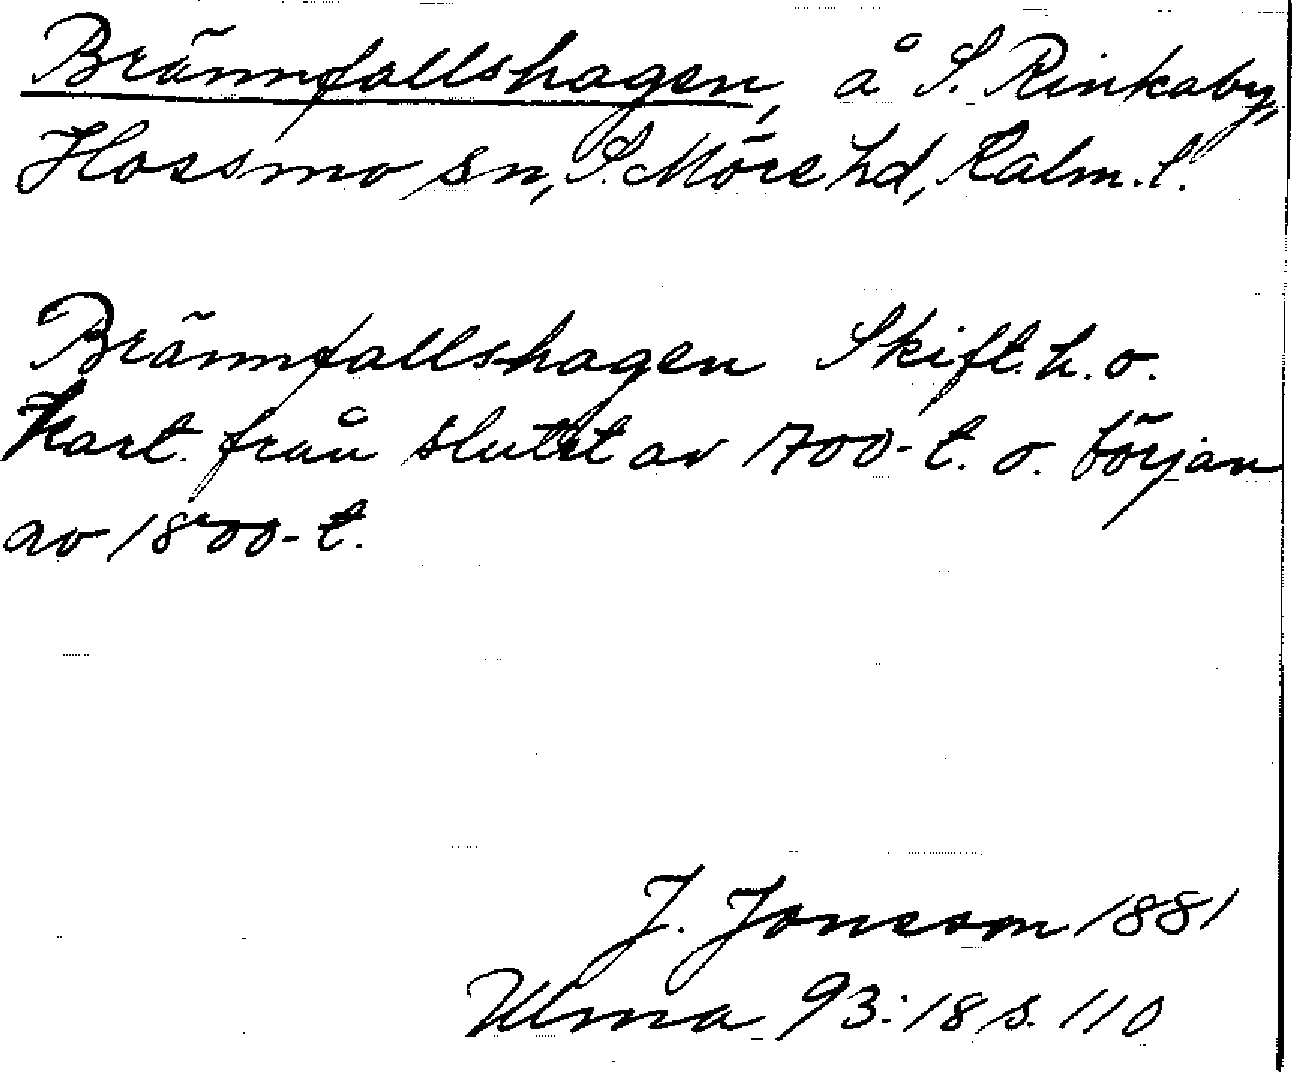 Brännfallshagen, å S. Rinkaby,
Hossmo sn, S. Möre hd, Kalm. l.
Brännfallshagen Skift. h. o.
Kart. från slutet av 1700-t. o. början
av 1800-t.
J. Jonsson 1881
Ulma 93:18 s. 110